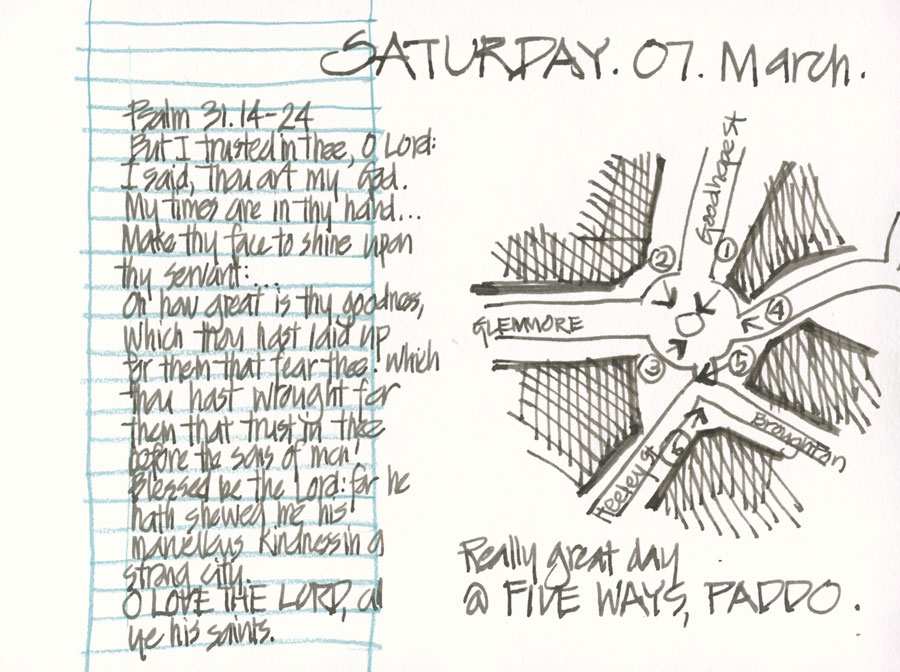 SATURDAY. 07. March.
Psalm 31.14-24
But I trusted in thee, O Lord:
I said, thou art my God.
My times are in thy hand...
Make thy face to shine upon
thy servant:...
Oh how great is thy goodness,
which thou hast laid up
for them that fear thee. Which
thou hast wrought for
them that trust in thee
before the sons of men!
Blessed be the Lord: for he
hath shewed me his
marvellous kindness in a
strong city.
O LOVE THE LORD, all
ye his saints.
Goodhope st
1
2
GLENMORE
4
3
5
Broughton
6
Heeley st
Really great day
@ FIVE WAYS, PADDO.